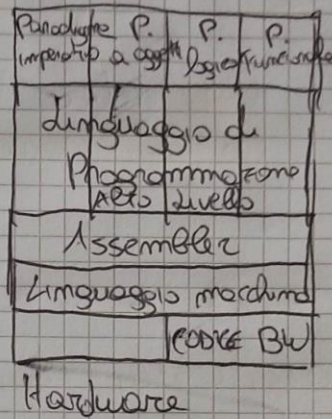 Paradigma P. P. P.
imperativo a oggetti logico funzionale
Linguaggio di
Programmazione
Alto Livello
Assembler
Linguaggio macchina
CODICE BW
Hardware